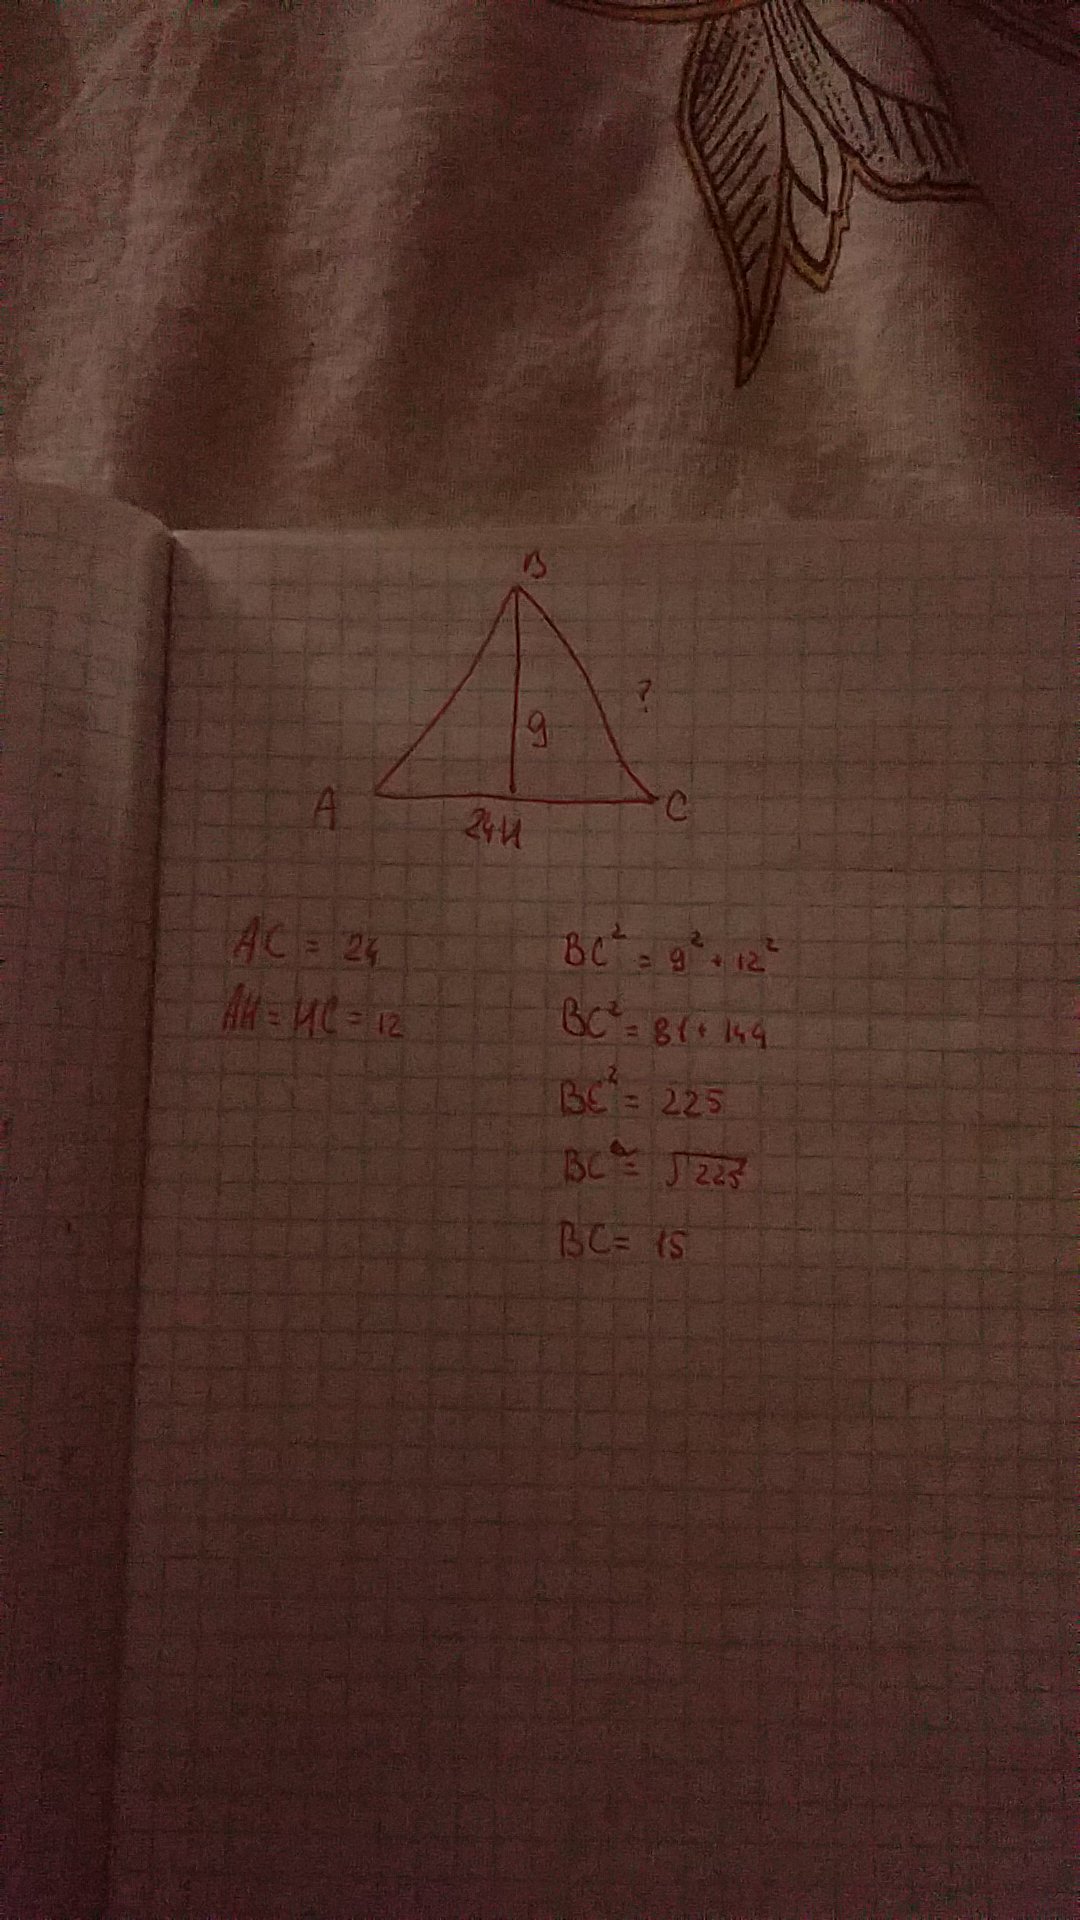 B
?
9
A
C
24 H
AC = 24
AH = HC = 12
BC² = 9² + 12²
BC² = 81 + 144
BC² = 225
BC = √225
BC = 15